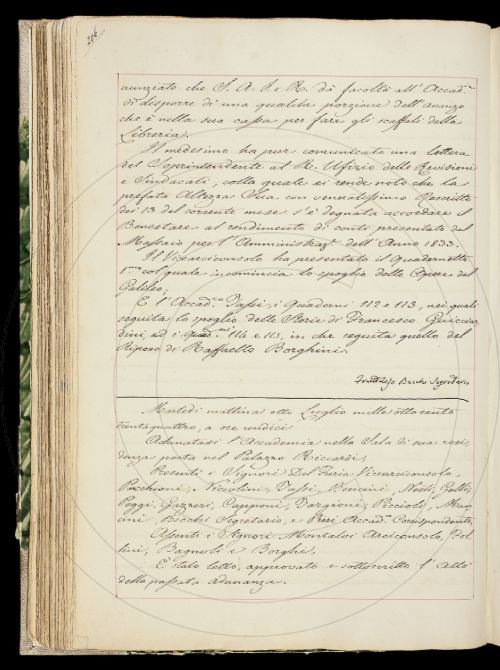 306
nunziato che S. A. I. e R. dà facoltà all' Accad.ª
di disporre di una qualche porzione dell' avanzo
che è nella sua cassa per fare gli scaffali della
Libreria.
Il medesimo ha pur comunicato una lettera
del Soprintendente al R. Ufizio delle Revisioni
e Sindacati, colla quale si rende noto che la
prefata Altezza Sua con veneratissimo Rescritto
dei 13 del corrente mese s'è degnata accordare il
Benestare al rendimento di conti presentato dal
Massaio per l'Amministraz.e dell' Anno 1833.
Il Vicearciconsolo ha presentato il Quadernetto
1.mo col quale incomincia lo spoglio delle Opere del
Galileo.
E l'Accad.co Tassi, i Quaderni 112 e 113, nei quali
seguita lo spoglio delle Storie di Francesco Guicciar
dini, ed i Quad.ni 114 e 115, in che seguita quello del
Riposo di Raffaello Borghini.
Fruttuoso Becchi Segretario
Martedì mattina otto Luglio mille ottocento
trentaquattro, a ore undici
Adunatasi l'Accademia nella Sala di sua resi,
denza posta nel Palazzo Riccardi,
Presenti i Signori Del Furia Vicearciconsolo,
Pacchioni, Niccolini, Tassi, Bencini, Nesti, Gatti,
Poggi, Gazzeri, Capponi, Targioni, Piccioli, Man,
cini, Becchi Segretario, e Accad.co Corrispondente,
Assenti i Signori Montalvi Arciconsolo, Bel,
lini, Bagnoli e Borghi.
È stato letto, approvato e sottoscritto l'Atto
della passata adunanza.